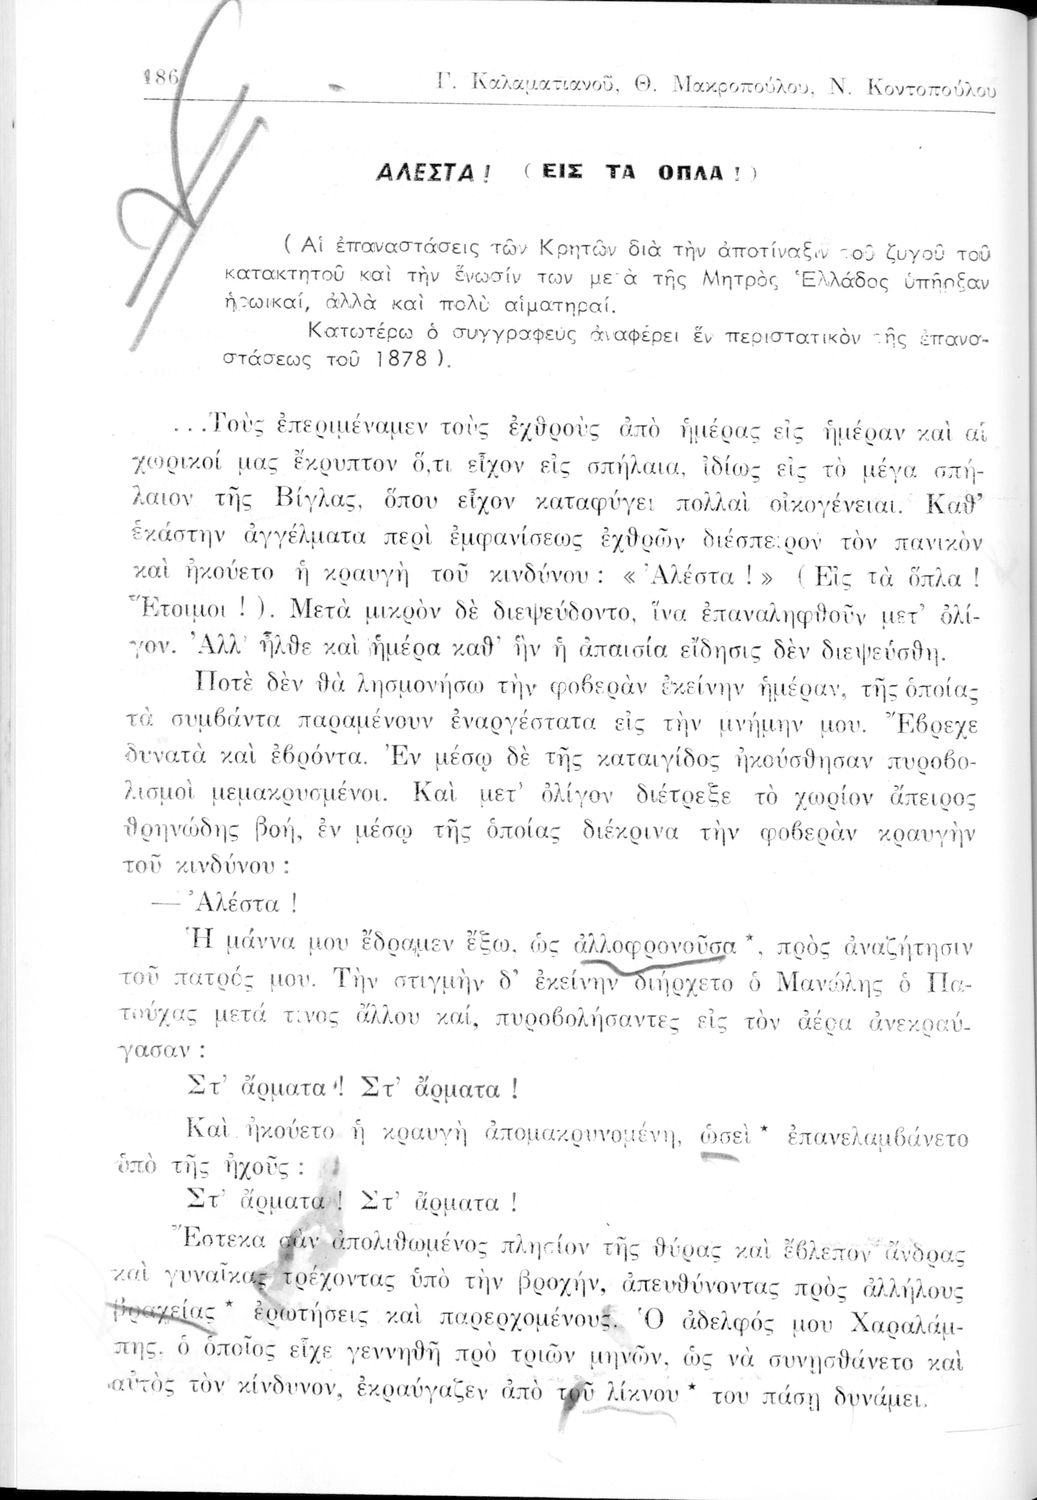 186
Γ. Καλαματιανοῦ, Θ. Μακροπούλου, Ν. Κοντοπούλου
ΑΛΕΣΤΑ ! ( ΕΙΣ ΤΑ ΟΠΛΑ ! )
( Αἱ ἐπαναστάσεις τῶν Κρητῶν διὰ τὴν ἀποτίναξιν τοῦ ζυγοῦ τοῦ
κατακτητοῦ καὶ τὴν ἕνωσίν των μετὰ τῆς Μητρὸς Ἑλλάδος ὑπῆρξαν
ἡρωικαί, ἀλλὰ καὶ πολὺ αἱματηραί.
Κατωτέρω ὁ συγγραφεὺς ἀναφέρει ἓν περιστατικὸν τῆς ἐπανα-
στάσεως τοῦ 1878 ).
...Τοὺς ἐπεριμέναμεν τοὺς ἐχθροὺς ἀπὸ ἡμέρας εἰς ἡμέραν καὶ αἱ
χωρικοί μας ἔκρυπτον ὅ,τι εἶχον εἰς σπήλαια, ἰδίως εἰς τὸ μέγα σπή-
λαιον τῆς Βίγλας, ὅπου εἶχον καταφύγει πολλαὶ οἰκογένειαι. Καθ’
ἑκάστην ἀγγέλματα περὶ ἐμφανίσεως ἐχθρῶν διέσπειρον τὸν πανικὸν
καὶ ἠκούετο ἡ κραυγὴ τοῦ κινδύνου : « Ἀλέστα ! » ( Εἰς τὰ ὅπλα !
Ἕτοιμοι ! ). Μετὰ μικρὸν δὲ διεψεύδοντο, ἵνα ἐπαναληφθοῦν μετ’ ὀλί-
γον. Ἀλλ’ ἦλθε καὶ ἡμέρα καθ’ ἣν ἡ ἀπαισία εἴδησις δὲν διεψεύσθη.
Ποτὲ δὲν θὰ λησμονήσω τὴν φοβερὰν ἐκείνην ἡμέραν, τῆς ὁποίας
τὰ συμβάντα παραμένουν ἐναργέστατα εἰς τὴν μνήμην μου. Ἔβρεχε
δυνατὰ καὶ ἐβρόντα. Ἐν μέσῳ δὲ τῆς καταιγίδος ἠκούσθησαν πυροβο-
λισμοὶ μεμακρυσμένοι. Καὶ μετ’ ὀλίγον διέτρεξε τὸ χωρίον ἄπειρος
θρηνώδης βοή, ἐν μέσῳ τῆς ὁποίας διέκρινα τὴν φοβερὰν κραυγὴν
τοῦ κινδύνου :
— Ἀλέστα !
Ἡ μάννα μου ἔδραμεν ἔξω, ὡς ἀλλοφρονοῦσα *, πρὸς ἀναζήτησιν
τοῦ πατρός μου. Τὴν στιγμὴν δ’ ἐκείνην διήρχετο ὁ Μανώλης ὁ Πα-
τούχας μετά τινος ἄλλου καί, πυροβολήσαντες εἰς τὸν ἀέρα ἀνεκραύ-
γασαν :
Στ’ ἄρματα ! Στ’ ἄρματα !
Καὶ ἠκούετο ἡ κραυγὴ ἀπομακρυνομένη, ὡσεὶ * ἐπανελαμβάνετο
ὑπὸ τῆς ἠχοῦς :
Στ’ ἄρματα ! Στ’ ἄρματα !
Ἔστεκα σὰν ἀπολιθωμένος πλησίον τῆς θύρας καὶ ἔβλεπον ἄνδρας
καὶ γυναῖκας τρέχοντας ὑπὸ τὴν βροχήν, ἀπευθύνοντας πρὸς ἀλλήλους
βραχείας * ἐρωτήσεις καὶ παρερχομένους. Ὁ ἀδελφός μου Χαραλάμ-
πης, ὁ ὁποῖος εἶχε γεννηθῆ πρὸ τριῶν μηνῶν, ὡς νὰ συνῃσθάνετο καὶ
αὐτὸς τὸν κίνδυνον, ἐκραύγαζεν ἀπὸ τοῦ λίκνου * του πάσῃ δυνάμει.